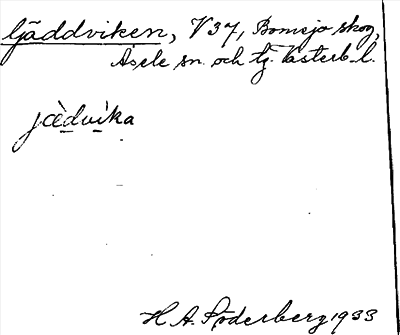 Gäddviken, V 37, Bomsjö skog,
Åsele sn. och tg. Västerb. l.
jæ̀dvìka
H A. Söderberg 1933